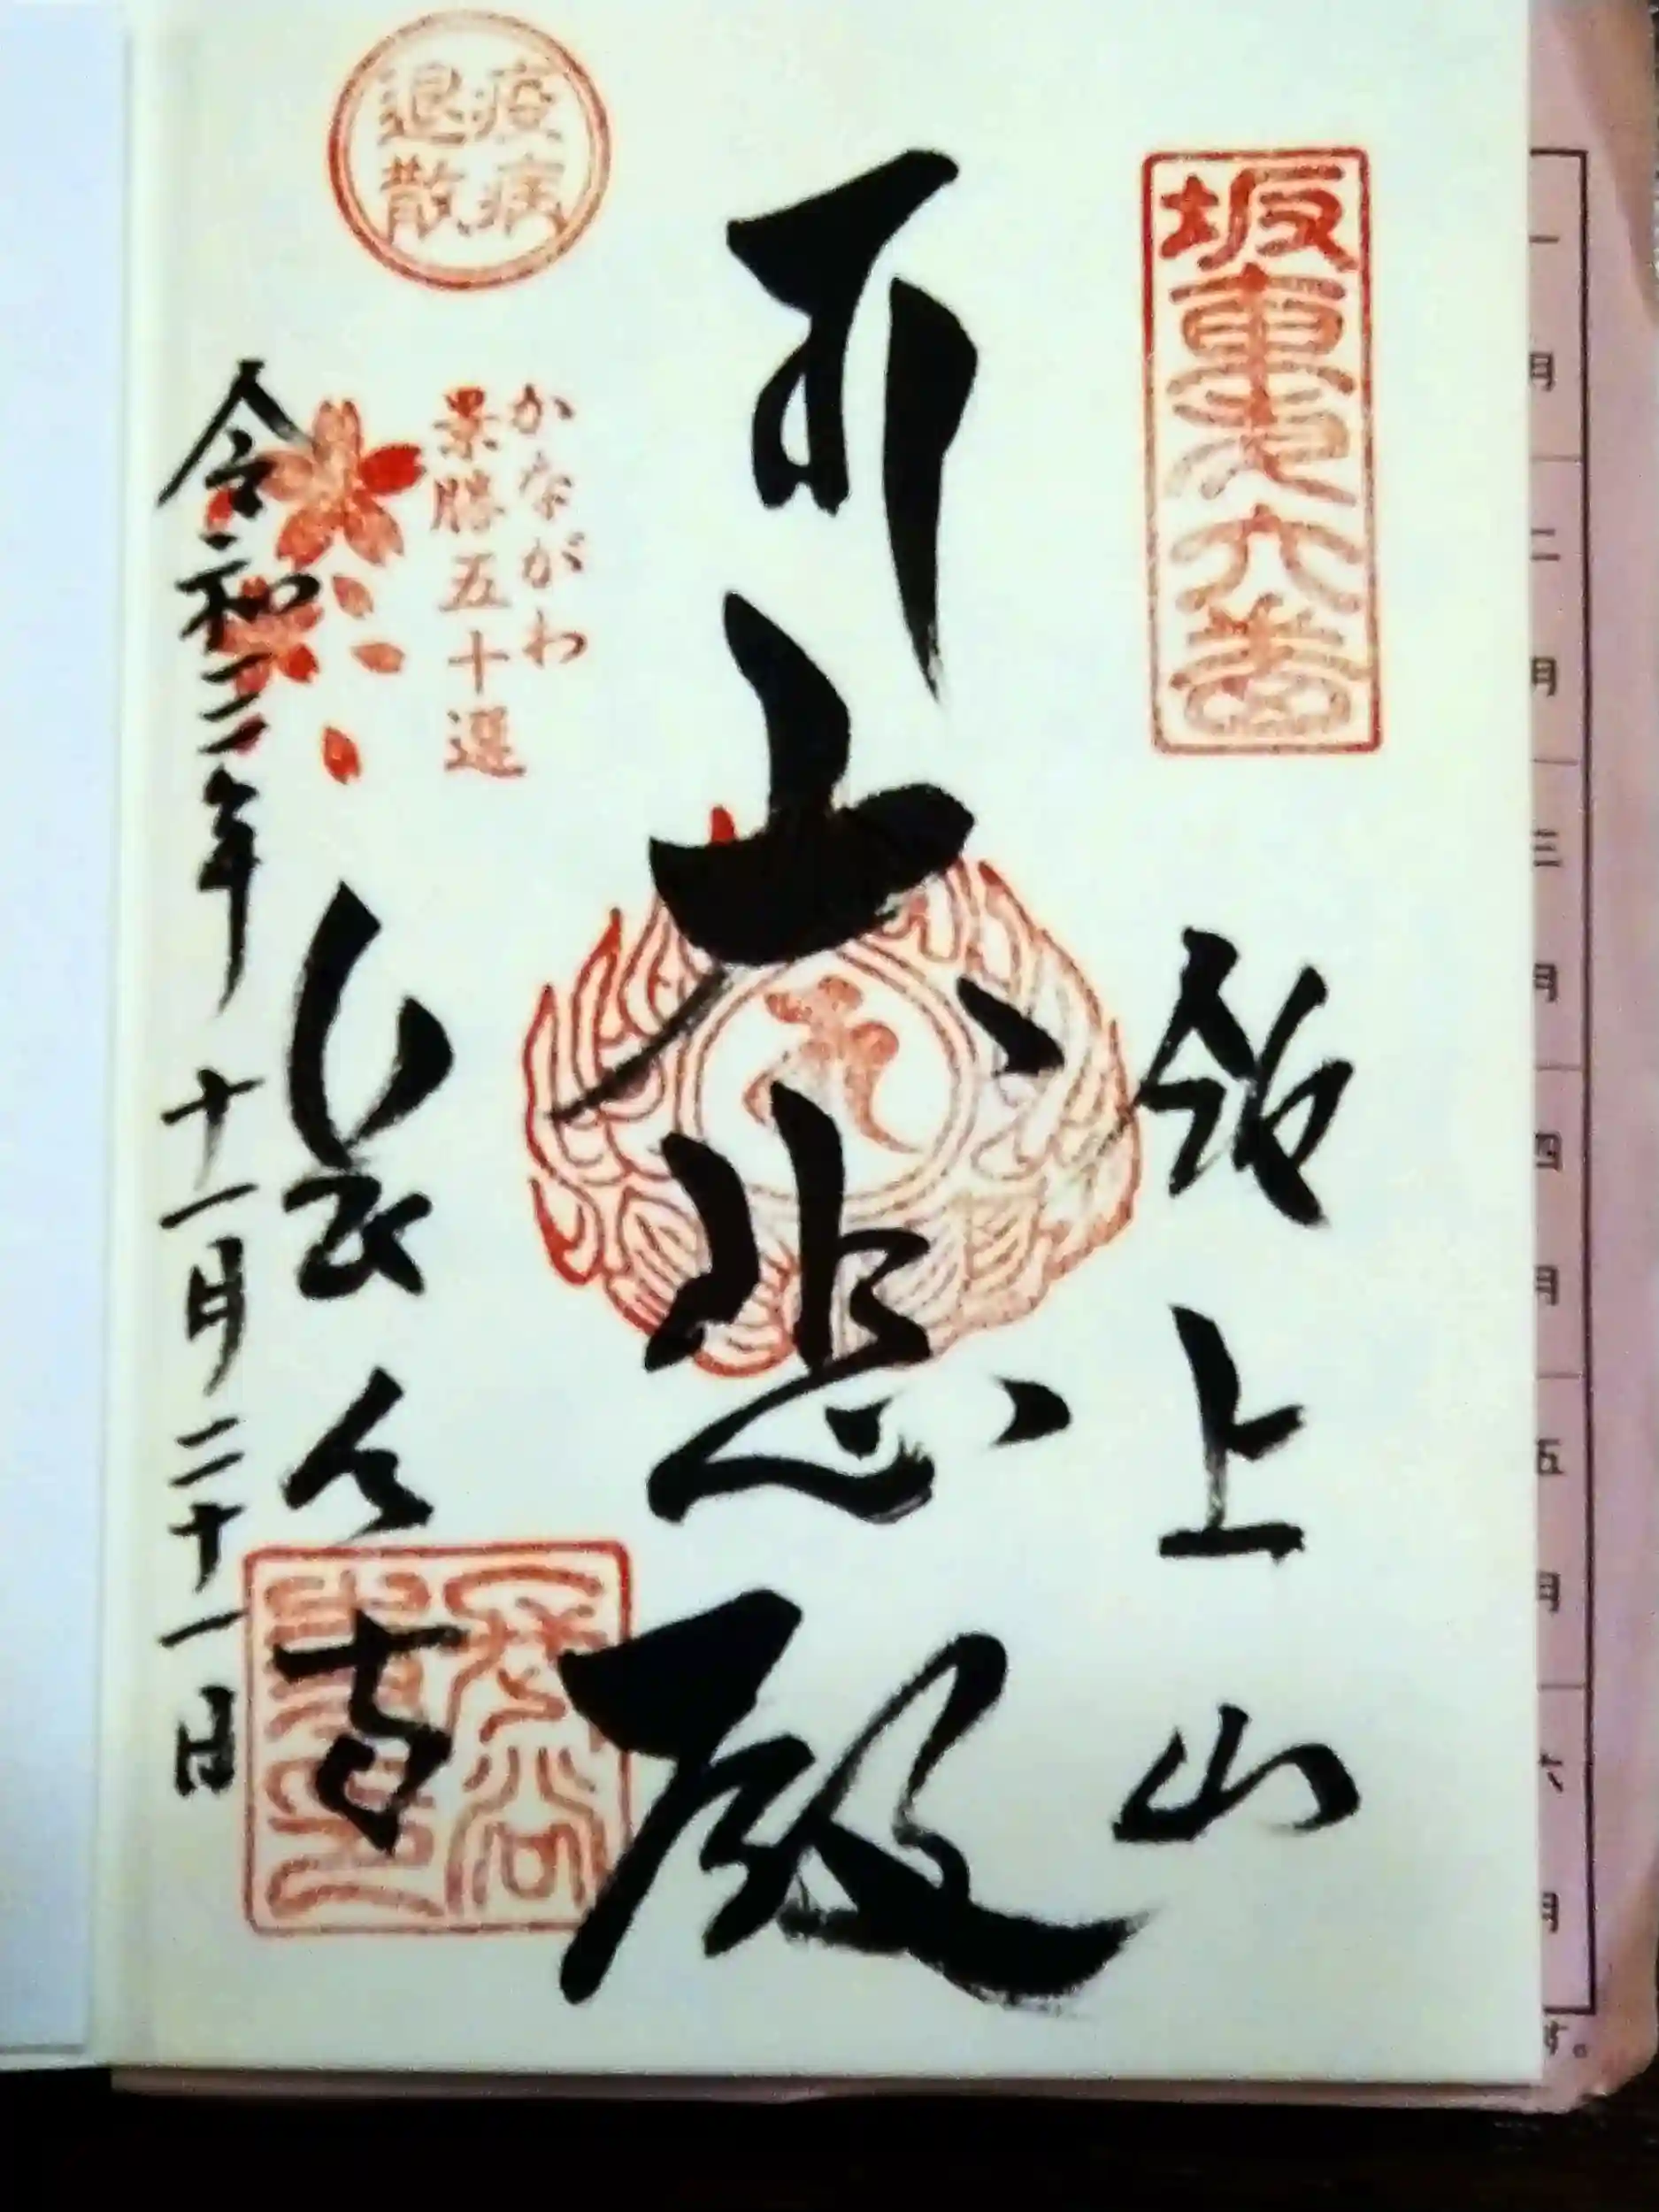 坂東第六番
飯上山
大悲殿
疫病
退散
かながわ
景勝五十選
長谷寺
令和二年十一月二十一日
一月
二月
三月
四月
五月
六月
す。